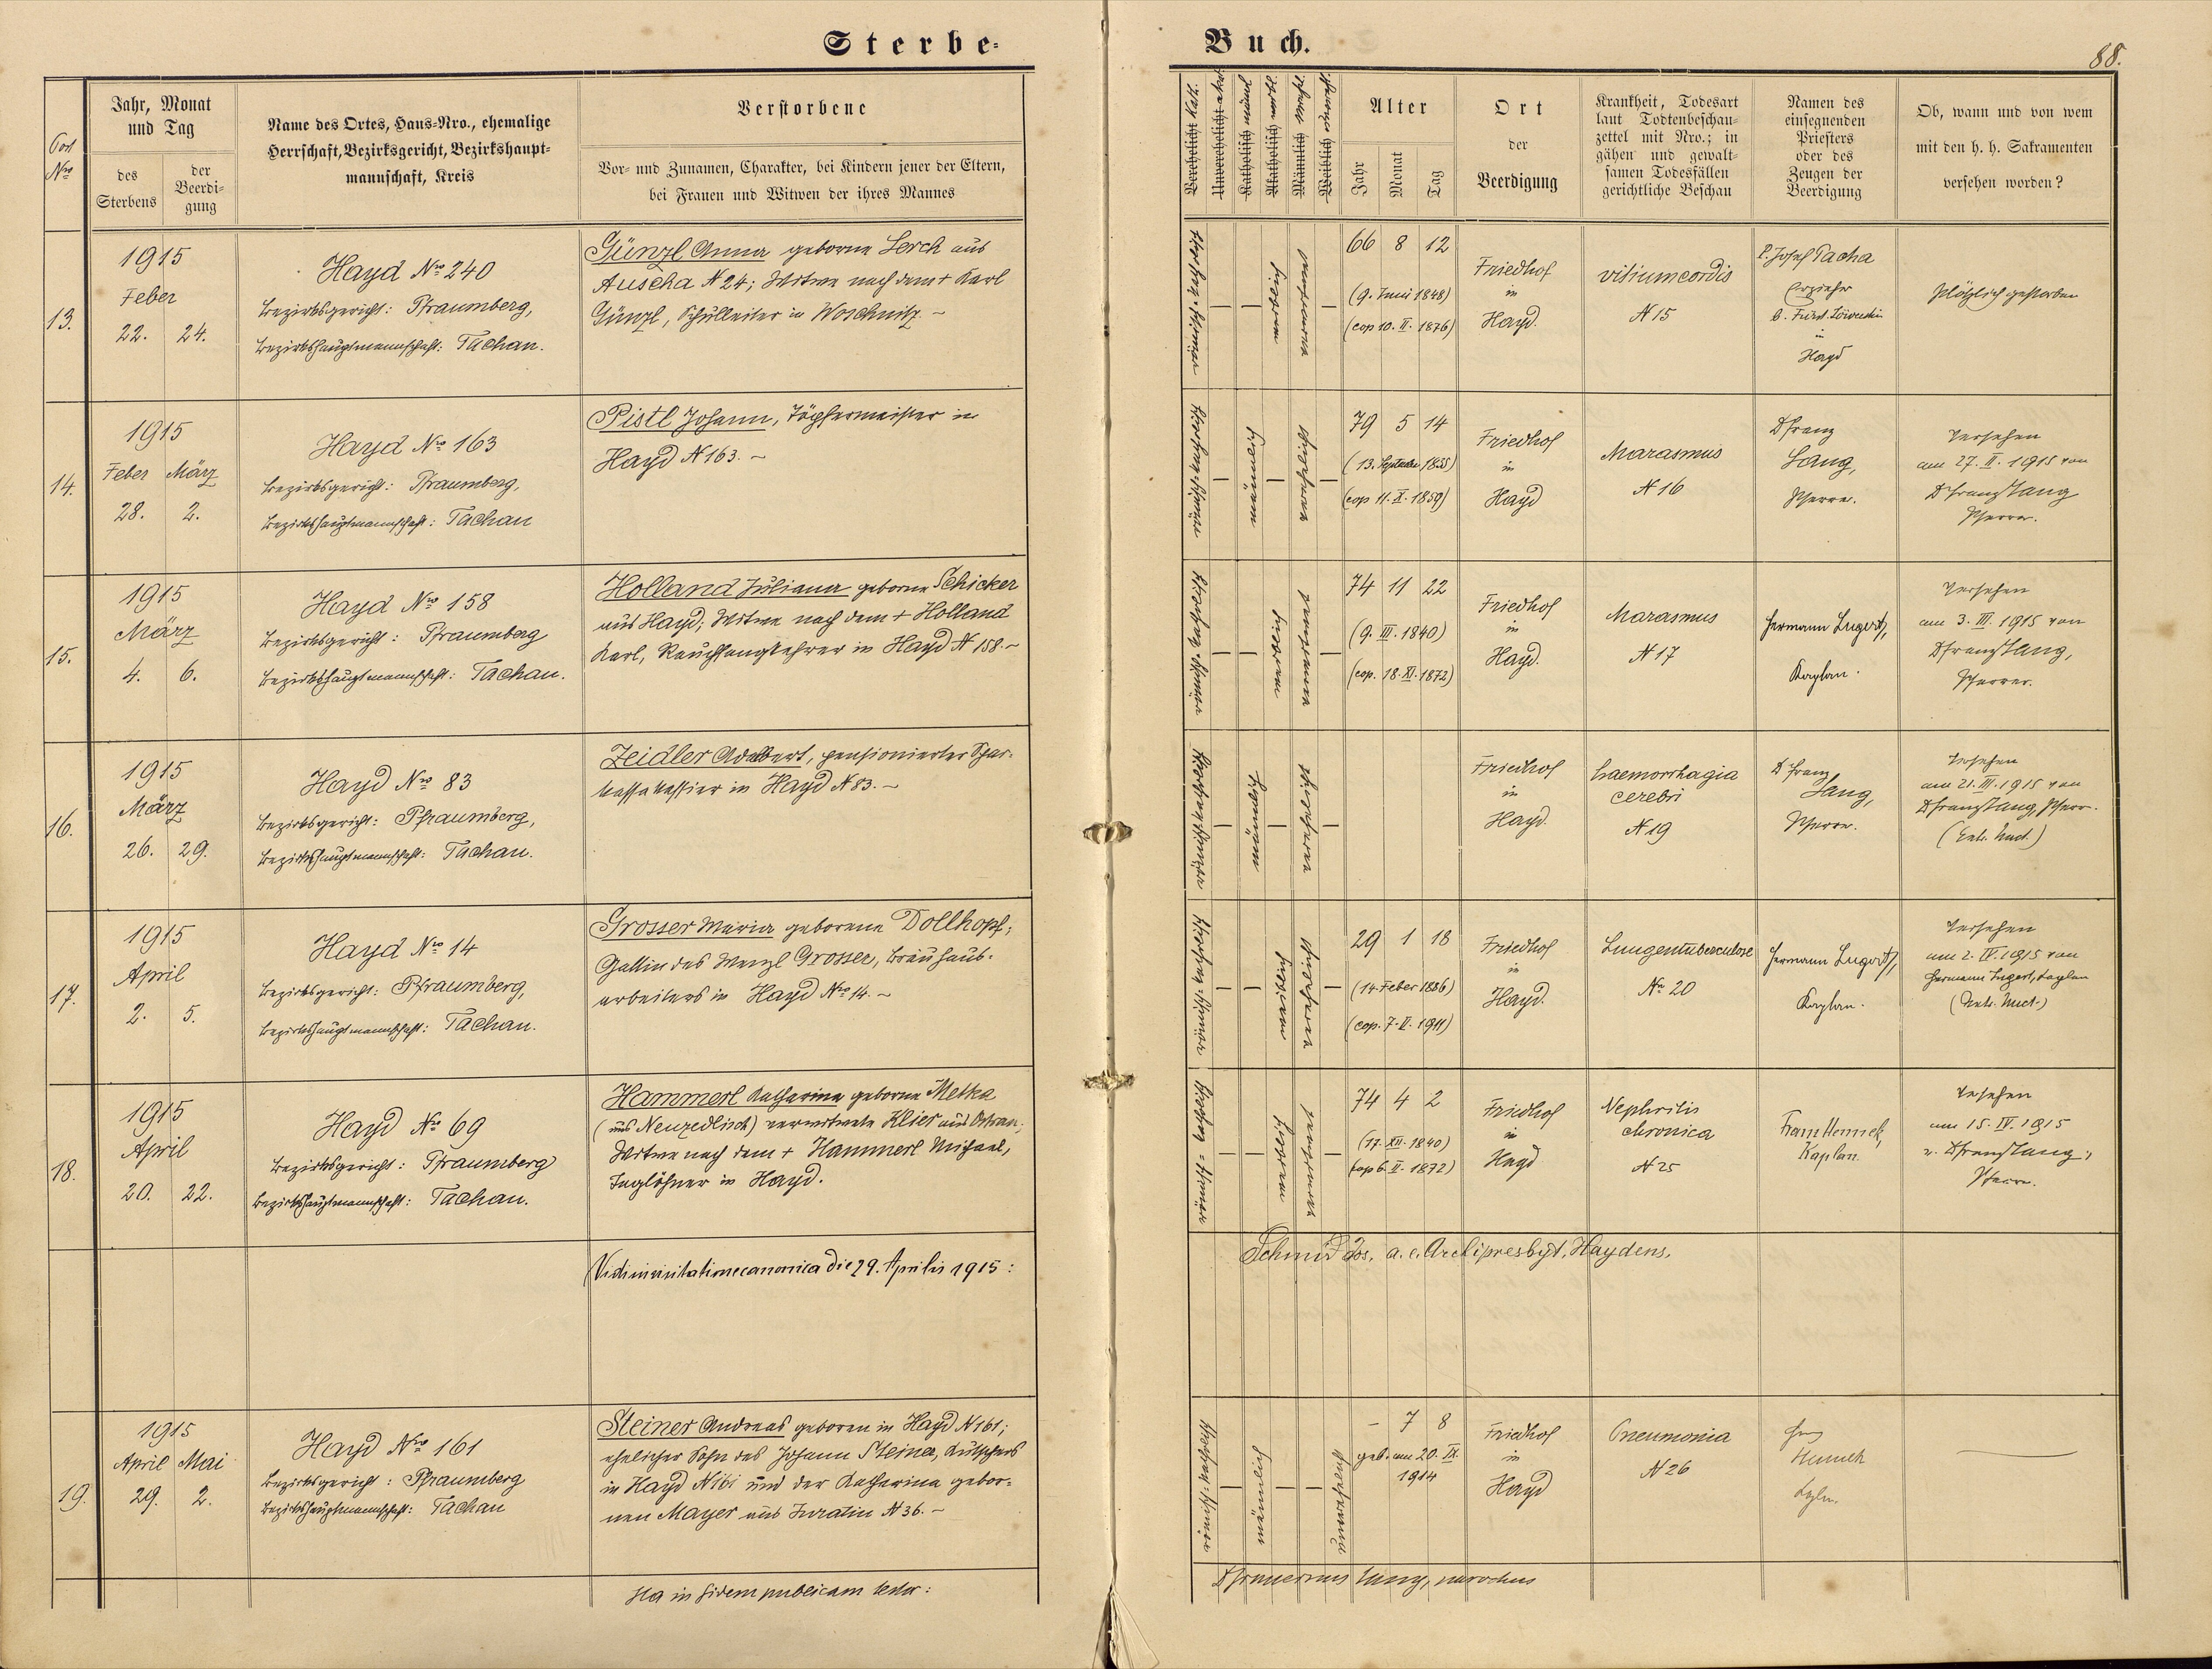 Sterbe-
Buch.
88.
Post Nro
Jahr, Monat
und Tag
des
Sterbens
der
Beerdi-
gung
Name des Ortes, Haus-Nro., ehemalige
Herrschaft, Bezirksgericht, Bezirkshaupt-
mannschaft, Kreis
Verstorbene
Vor- und Zunamen, Charakter, bei Kindern jener der Eltern,
bei Frauen und Witwen der ihres Mannes
Verehelicht
Unverehelicht
Katholisch
Akatholisch
Männlich
Weiblich
Alter
Jahr
Monat
Tag
Ort
der
Beerdigung
Krankheit, Todesart
laut Todtenbeschau-
zettel mit Nro.; in
gähen und gewalt-
samen Todesfällen
gerichtliche Beschau
Namen des
einsegnenden
Priesters
oder des
Zeugen der
Beerdigung
Ob, wann und von wem
mit den h. h. Sakramenten
versehen worden?
13.
1915
Feber
22. 24.
Hayd Nro 240
Bezirksgericht: Pfraumberg,
Bezirkshauptmannschaft: Tachau.
Günzl Anna geborne Lerch aus
Auscha N 24; Witwe nach dem + Karl
Günzl, Schulleiter in Woschnitz. –
66 8 12
(9. Juni 1848)
(cop 10. II. 1876)
Friedhof
in
Hayd.
vitium cordis
N 15
P. Josef Pacha
Erzieher
b. Fürst. Löwenstein
in
Hayd
Plötzlich gestorben
14.
1915
Feber März
28. 2.
Hayd Nro 163
Bezirksgericht: Pfraumberg,
Bezirkshauptmannschaft: Tachau
Pistl Johann, Töpfermeister in
Hayd N 163. –
79 5 14
(13. September 1835)
(cop 11. X. 1859)
Friedhof
in
Hayd
Marasmus
N 16
D Franz
Lang,
Pfarrer.
Versehen
am 27. II. 1915 von
D Franz Lang
Pfarrer.
15.
1915
März
4. 6.
Hayd Nro 158
Bezirksgericht: Pfraumberg
Bezirkshauptmannschaft: Tachau.
Holland Juliana geborne Schicker
aus Hayd; Witwe nach dem + Holland
Karl, Rauchfangkehrer in Hayd N 158. –
74 11 22
(9. III. 1840)
(cop. 18. XI. 1872)
Friedhof
in
Hayd.
Marasmus
N 17
Hermann Lugert,
Kaplan.
Versehen
am 3. III. 1915 von
D Franz Lang,
Pfarrer.
16.
1915
März
26. 29.
Hayd Nro 83
Bezirksgericht: Pfraumberg,
Bezirkshauptmannschaft: Tachau.
Zeidler Adalbert, pensionierter Spar-
kassakassier in Hayd N 83. –
Friedhof
in
Hayd.
haemorrhagia
cerebri
N 19
D Franz
Lang,
Pfarrer.
Versehen
am 21. III. 1915 von
D Franz Lang, Pfarrer.
(Extr. Unct.)
17.
1915
April
2. 5.
Hayd Nro 14
Bezirksgericht: Pfraumberg,
Bezirkshauptmannschaft: Tachau.
Grosser Maria geborene Dollhopf;
Gattin des Wenzl Grosser, Bräuhaus-
arbeiters in Hayd Nro 14. –
29 1 18
(14 Feber 1886)
(cop. 7. II. 1911)
Friedhof
in
Hayd.
Lungentuberculose
Nro 20
Hermann Lugert,
Kaplan.
Versehen
am 2. IV. 1915 von
Hermann Lugert, Kaplan
(Extr. Unct.)
18.
1915
April
20. 22.
Hayd Nro 69
Bezirksgericht: Pfraumberg
Bezirkshauptmannschaft: Tachau.
Hammerl Katharina geborne Metka
(aus Neuzedlisch) verwitwete Klier aus
Witwe nach dem + Hammerl Michael,
Taglöhner in Hayd.
74 4 2
(17. XII. 1840)
(cop 6. II. 1872)
Friedhof
in
Hayd
Nephritis
chronica
N 25
Franz Hennek,
Kaplan.
Versehen
am 15. IV. 1915
v. D Franz Lang,
Pfarrer.
Vidi in visitatione canonica die 29. Aprilis 1915:
Schmid Jos. a. e. Archipresbyt. Haydens.
19.
1915
April Mai
29. 2.
Hayd Nro 161
Bezirksgericht: Pfraumberg
Bezirkshauptmannschaft: Tachau
Steiner Andreas geboren in Hayd N 161;
ehelicher Sohn des Johann Steiner, Kutschers
in Hayd N 161 und der Katharina gebor-
nen Mayer aus Juratin N 36. –
– 7 8
geb. am 20. IX.
1914
Friedhof
in
Hayd
Pneumonia
N 26
Franz
Hennek
Kapln.
Ita in fidem publicam testor:
D Franciscus Lang, parochus